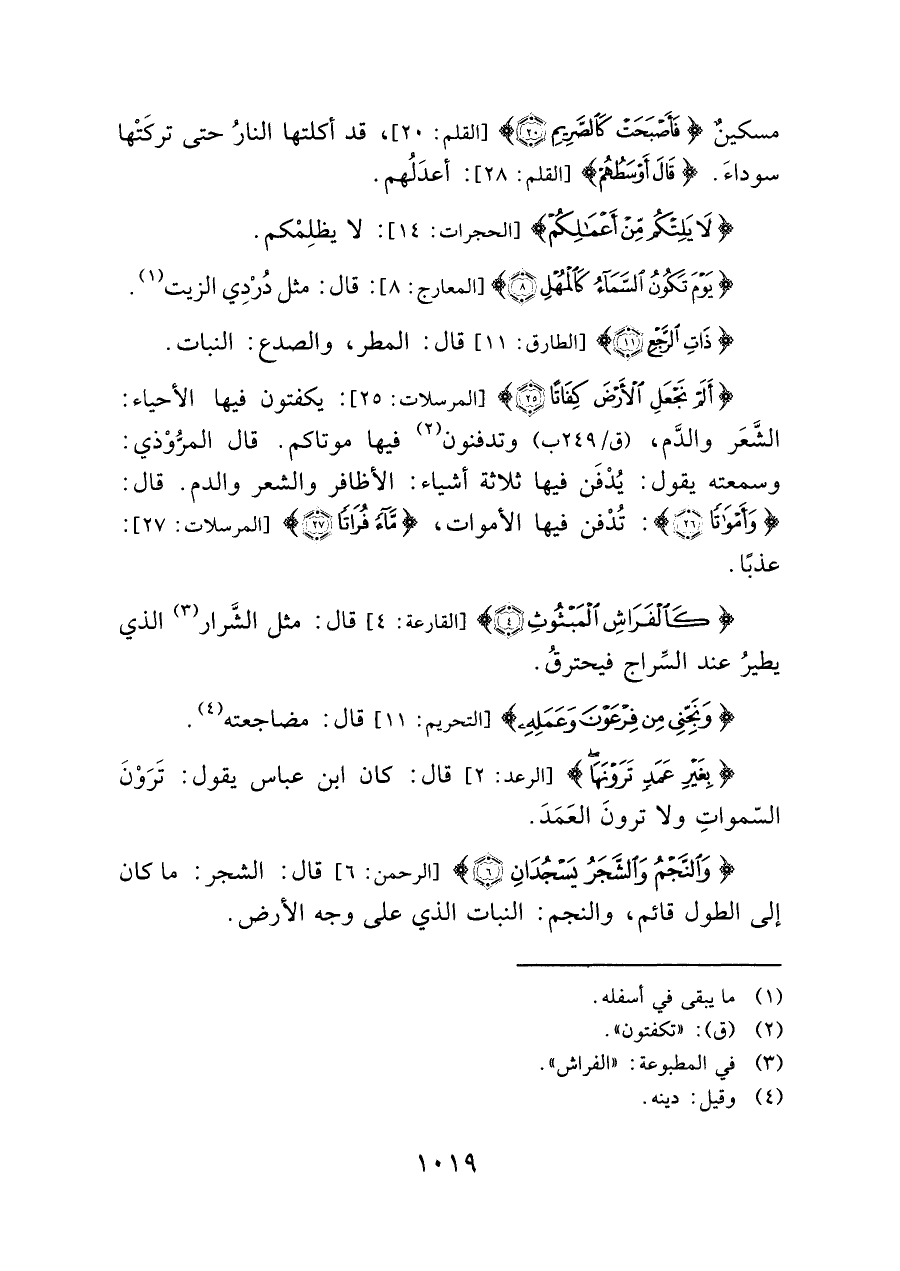 مسكينٌ ﴿ فَأَصْبَحَتْ كَالصَّرِيمِ ٢٠﴾ [القلم: ٢٠]، قد أكلتها النارُ حتى تركَتْها
سوداءَ. ﴿ قَالَ أَوْسَطُهُمْ﴾ [القلم: ٢٨]: أعدَلُهم.
﴿ لَا يَلِتْكُم مِّنْ أَعْمَٰلِكُمْ﴾ [الحجرات: ١٤]: لا يظلِمْكم.
﴿ يَوْمَ تَكُونُ ٱلسَّمَآءُ كَٱلْمُهْلِ ٨﴾ [المعارج: ٨]: قال: مثل دُرْدِي الزيت(١).
﴿ ذَاتِ ٱلرَّجْعِ ١١﴾ [الطارق: ١١] قال: المطر، والصدع: النبات.
﴿ أَلَمْ نَجْعَلِ ٱلْأَرْضَ كِفَاتًا ٢٥﴾ [المرسلات: ٢٥]: يكفتون فيها الأحياء:
الشَّعَر والدَّم، (ق/٢٤٩ب) وتدفنون(٢) فيها موتاكم. قال المرُّوْذي:
وسمعته يقول: يُدْفَن فيها ثلاثة أشياء: الأظافر والشعر والدم. قال:
﴿ وَأَمْوَٰتًا ٢٦﴾: تُدْفن فيها الأموات، ﴿ مَّآءً فُرَاتًا ٢٧﴾ [المرسلات: ٢٧]:
عذبًا.
﴿ كَٱلْفَرَاشِ ٱلْمَبْثُوثِ ٤﴾ [القارعة: ٤] قال: مثل الشَّرار(٣) الذي
يطيرُ عند السِّراج فيحترقُ.
﴿ وَنَجِّنِى مِن فِرْعَوْنَ وَعَمَلِهِۦ﴾ [التحريم: ١١] قال: مضاجعته(٤).
﴿ بِغَيْرِ عَمَدٍ تَرَوْنَهَاۖ ﴾ [الرعد: ٢] قال: كان ابن عباس يقول: تَرَوْنَ
السّمواتِ ولا ترونَ العَمَدَ.
﴿ وَٱلنَّجْمُ وَٱلشَّجَرُ يَسْجُدَانِ ٦﴾ [الرحمن: ٦] قال: الشجر: ما كان
إلى الطول قائم، والنجم: النبات الذي على وجه الأرض.
(١) ما يبقى في أسفله.
(٢) (ق): «تكفتون».
(٣) في المطبوعة: «الفراش».
(٤) وقيل: دينه.
١٠١٩